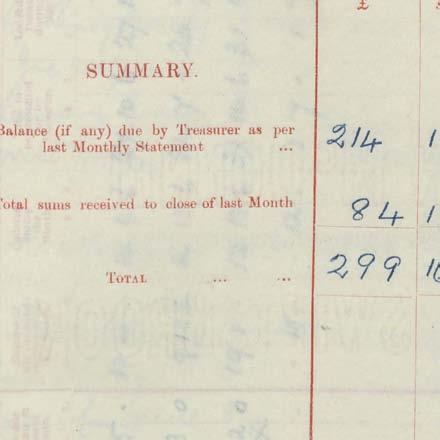 £
SUMMARY.
Balance (if any) due by Treasurer as per
last Monthly Statement ... 214
Total sums received to close of last Month 84
TOTAL ... ... 299